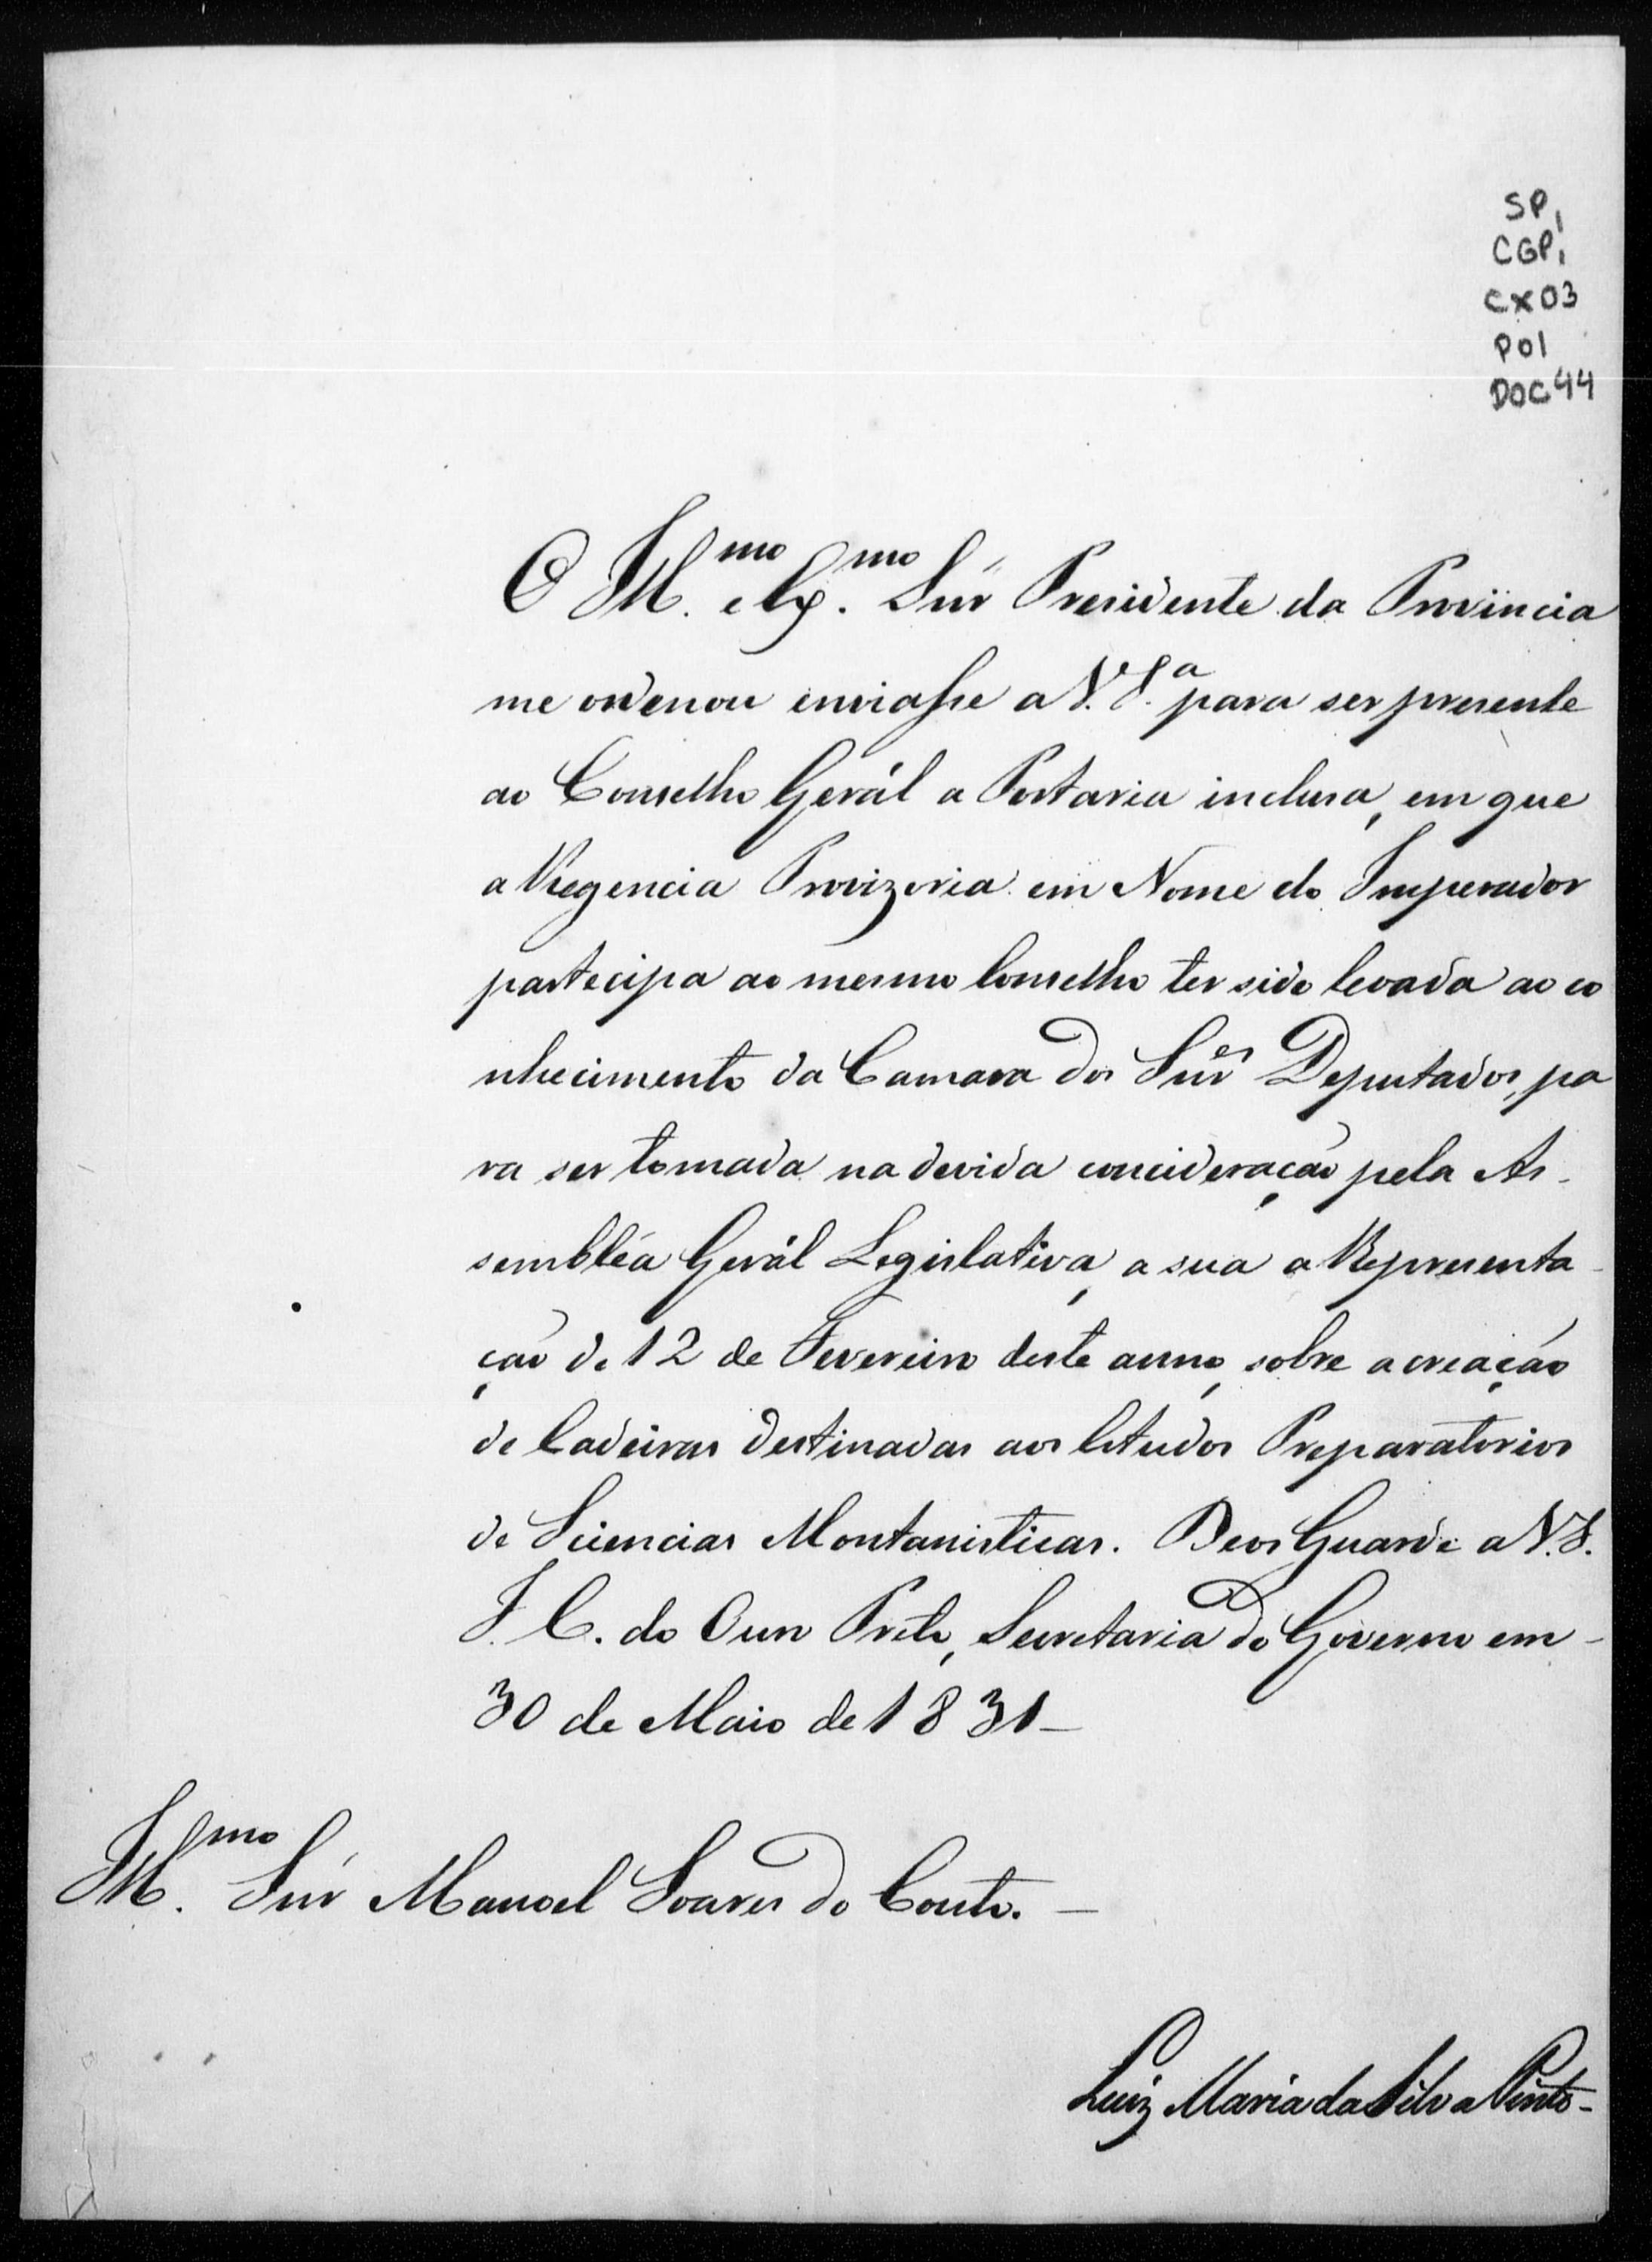 SP,
CGP,
CX03
P01
DOC44
O Ill.mo e Ex.mo Snr Presidente da Provincia
me ordenou enviasse a V. S.a para ser presente
ao Conselho Gerál a Portaria inclusa, em que
a Regencia Provizoria em Nome do Imperador
partecipa ao mesmo Conselho ter sido levada ao co
nhecimento da Camara dos Snr.es Deputados, pa
ra ser tomada na devida concideração pela As-
sembléa Gerál Legislativa, a sua a Representa-
ção de 12 de Fevereiro deste anno, sobre a creação
de Cadeiras destinadas aos Estudos Preparatorios
de Sciencias Montanisticas. Deos Guarde a V. S.
I. C. do Ouro Preto, Secretaria do Governo em-
30 de Maio de 1831-
Ill.mo Snr Manoel Soares do Couto. -
Luiz Maria da Silva Pinto-